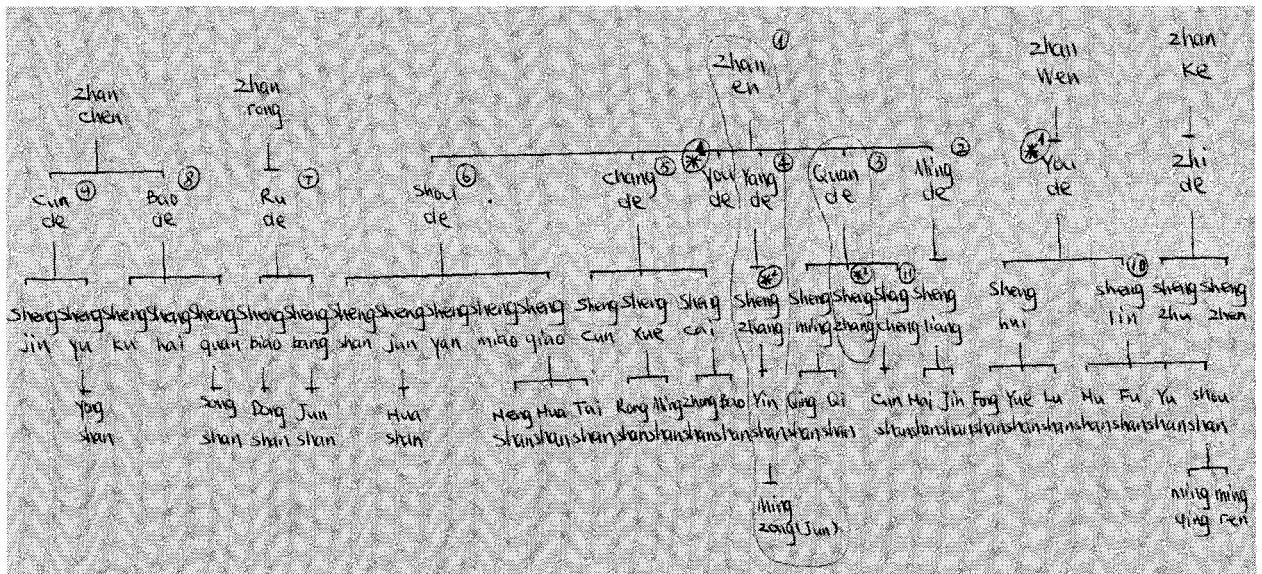 zhan chen
zhan rong
zhan en ①
zhan wen
zhan ke
Cun de ⑨
Bao de ⑧
Ru de ⑦
Shou de ⑥
Chang de ⑤
*1 You de
Yang de ④
Quan de ③
Ming de ②
*1 You de
Zhi de
Sheng jin
Sheng yu
Sheng ku
Sheng hai
Sheng quan
Sheng biao
Sheng bang
Sheng shan
Sheng jun
Sheng yan
Sheng miao
Sheng qiao
Sheng cun
Sheng xue
Sheng cai
*2 Sheng zhang
Sheng ming
*2 Sheng zhang
Sheng cheng ⑪
Sheng liang
Sheng hui
Sheng lin ⑩
Sheng zhu
Sheng zhen
Yong shan
Song shan
Dong shan
Jun shan
Hua shan
Heng shan
Hua shan
Tai shan
Rong shan
Ming shan
Zhong shan
Bao shan
Yin shan
Qing shan
Qi shan
Cun shan
Hai shan
Jin shan
Fong shan
Yue shan
Lu shan
Hu shan
Fu shan
Yu shan
shou shan
Ming zong (Jun)
ming ying
ming ren